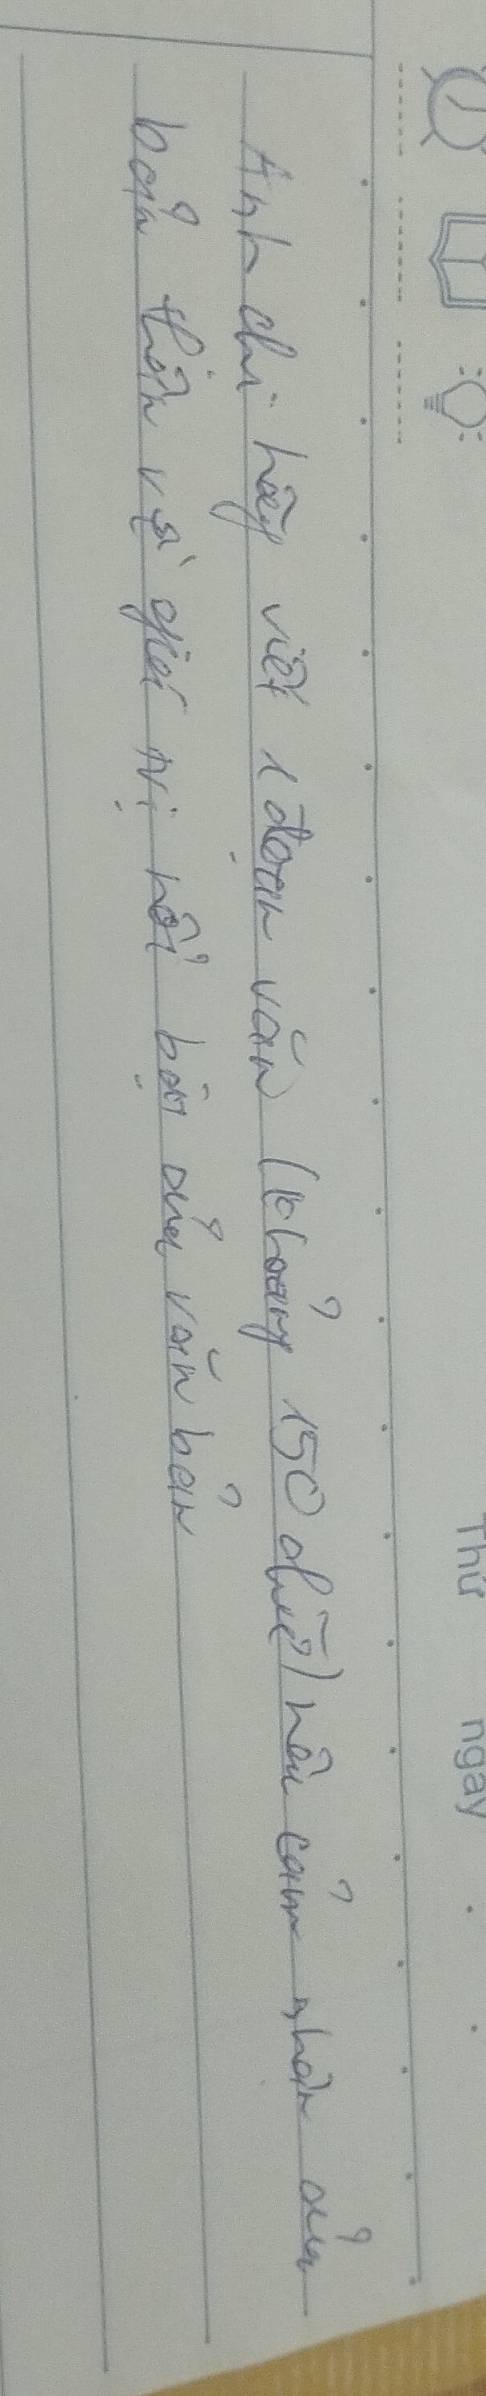 Thứ ngày
Anh chị hãy viết 1 đoạn văn (khoảng 150 chữ) nêu cảm nhận của
bản thân về giá trị nổi bật của văn bản